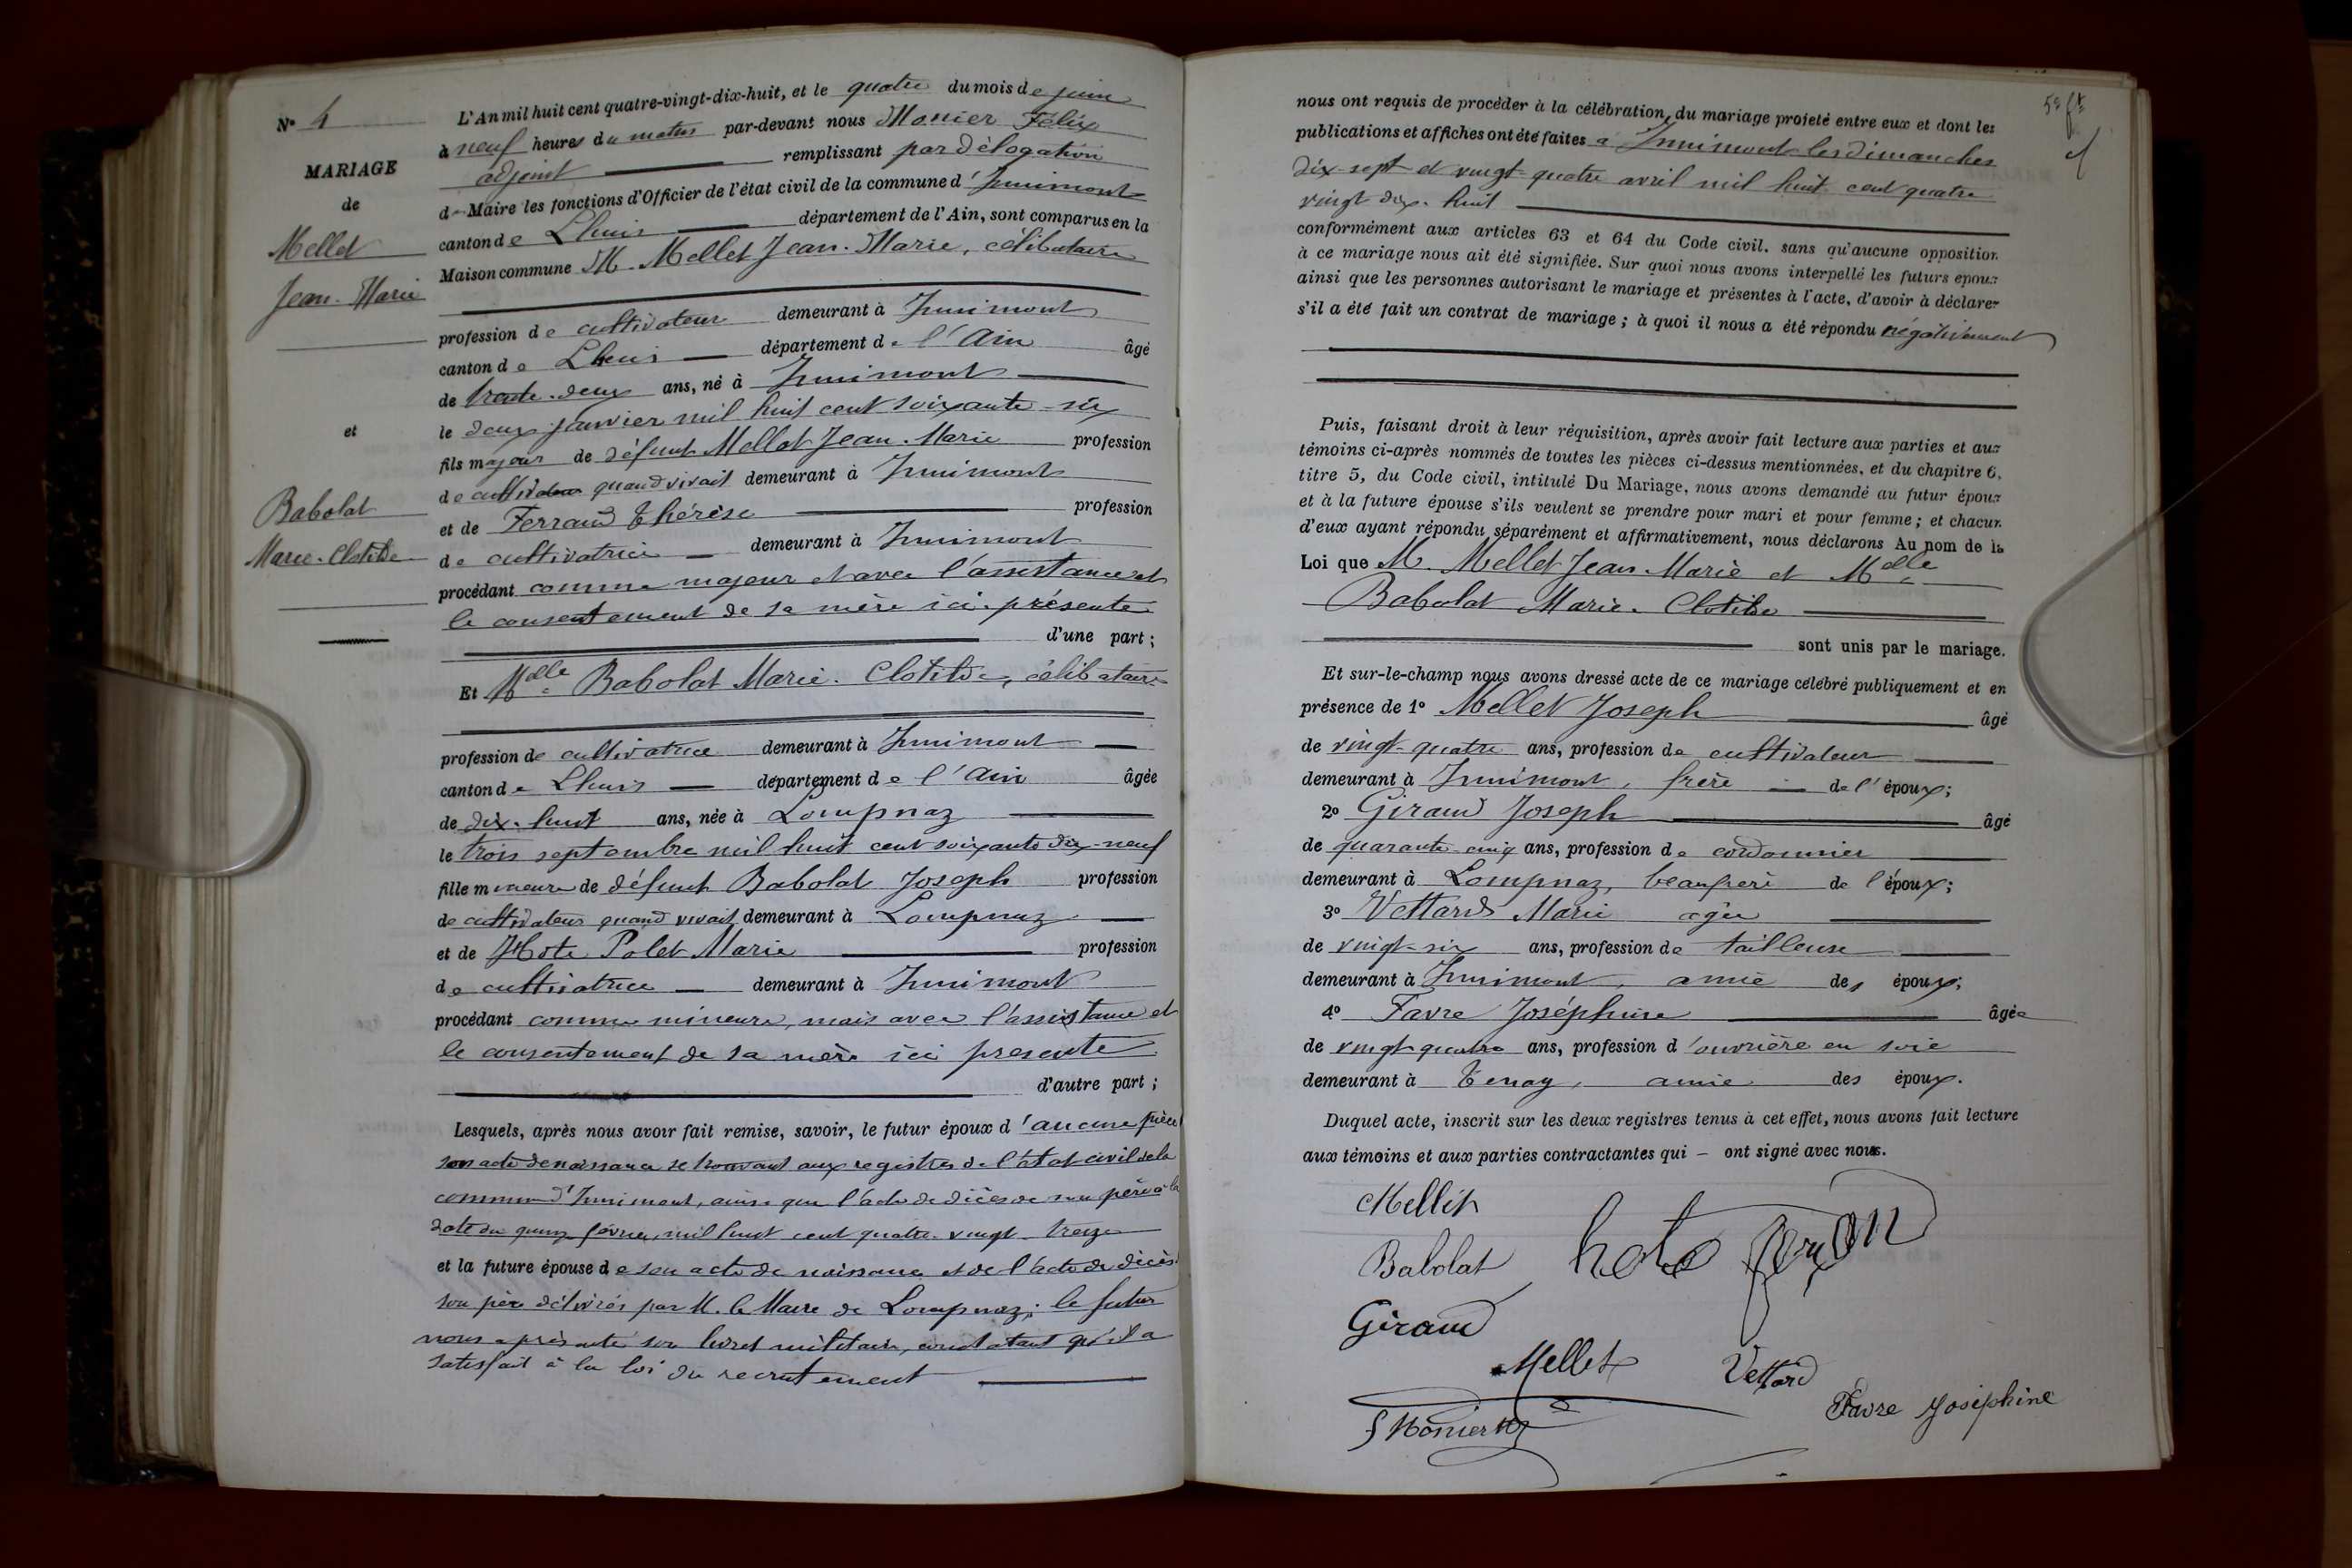 N° 4
MARIAGE
de
Mellet
Jean-Marie
et
Babolat
Marie-Clotilde
L'An mil huit cent quatre-vingt-dix-huit, et le quatre du mois de juin
à neuf heures du matin par-devant nous Monier Félix
adjoint remplissant par délégation
de Maire les fonctions d'Officier de l'état civil de la commune d'Innimont
canton de Lhuis département de l'Ain, sont comparus en la
Maison commune M. Mellet Jean-Marie, célibataire
profession de cultivateur demeurant à Innimont
canton de Lhuis département de l'Ain âgé
de trente-deux ans, né à Innimont
le deux janvier mil huit cent soixante-six
fils majeur de défunt Mellet Jean-Marie profession
de cultivateur quand vivait demeurant à Innimont
et de Ferrand Thérèse profession
de cultivatrice demeurant à Innimont
procédant comme majeur et avec l'assistance et
le consentement de sa mère ici présente
d'une part ;
Et Melle Babolat Marie-Clotilde, célibataire
profession de cultivatrice demeurant à Innimont
canton de Lhuis département de l'Ain âgée
de dix-huit ans, née à Lompnaz
le trois septembre mil huit cent soixante dix-neuf
fille mineure de défunt Babolat Joseph profession
de cultivateur quand vivait demeurant à Lompnaz
et de Hote Polet Marie profession
de cultivatrice demeurant à Innimont
procédant comme mineure, mais avec l'assistance et
le consentement de sa mère ici présente
d'autre part ;
Lesquels, après nous avoir fait remise, savoir, le futur époux d'aucune pièce
son acte de naissance se trouvant aux registres de l'état civil de la
commune d'Innimont, ainsi que l'acte de décès de son père à la
date du quinze février mil huit cent quatre-vingt-treize
et la future épouse de son acte de naissance et de l'acte de décès
son père délivrés par M. le Maire de Lompnaz ; le futur
nous a présenté son livret militaire, constatant qu'il a
satisfait à la loi du recrutement
nous ont requis de procéder à la célébration du mariage projeté entre eux et dont les
publications et affiches ont été faites à Innimont les dimanches
dix-sept et vingt-quatre avril mil huit cent quatre
vingt dix-huit
conformément aux articles 63 et 64 du Code civil. sans qu'aucune opposition
à ce mariage nous ait été signifiée. Sur quoi nous avons interpellé les futurs époux
ainsi que les personnes autorisant le mariage et présentes à l'acte, d'avoir à déclarer
s'il a été fait un contrat de mariage ; à quoi il nous a été répondu négativement
Puis, faisant droit à leur réquisition, après avoir fait lecture aux parties et aux
témoins ci-après nommés de toutes les pièces ci-dessus mentionnées, et du chapitre 6,
titre 5, du Code civil, intitulé Du Mariage, nous avons demandé au futur époux
et à la future épouse s'ils veulent se prendre pour mari et pour femme ; et chacun
d'eux ayant répondu séparément et affirmativement, nous déclarons Au nom de la
Loi que M. Mellet Jean-Marie et Melle
Babolat Marie-Clotilde
sont unis par le mariage.
Et sur-le-champ nous avons dressé acte de ce mariage célébré publiquement et en
présence de 1° Mellet Joseph âgé
de vingt-quatre ans, profession de cultivateur
demeurant à Innimont, frère de l'époux ;
2° Giraud Joseph âgé
de quarante-cinq ans, profession de cordonnier
demeurant à Lompnaz, beaufrère de l'époux ;
3° Vettard Marie agée
de vingt-six ans, profession de tailleuse
demeurant à Innimont, amie des époux ;
4° Favre Joséphine âgée
de vingt-quatre ans, profession d'ouvrière en soie
demeurant à Tenay, amie des époux.
Duquel acte, inscrit sur les deux registres tenus à cet effet, nous avons fait lecture
aux témoins et aux parties contractantes qui – ont signé avec nous.
Mellet
Babolat hote
Giraud
Mellet Vettard
Favre Joséphine
F Monier